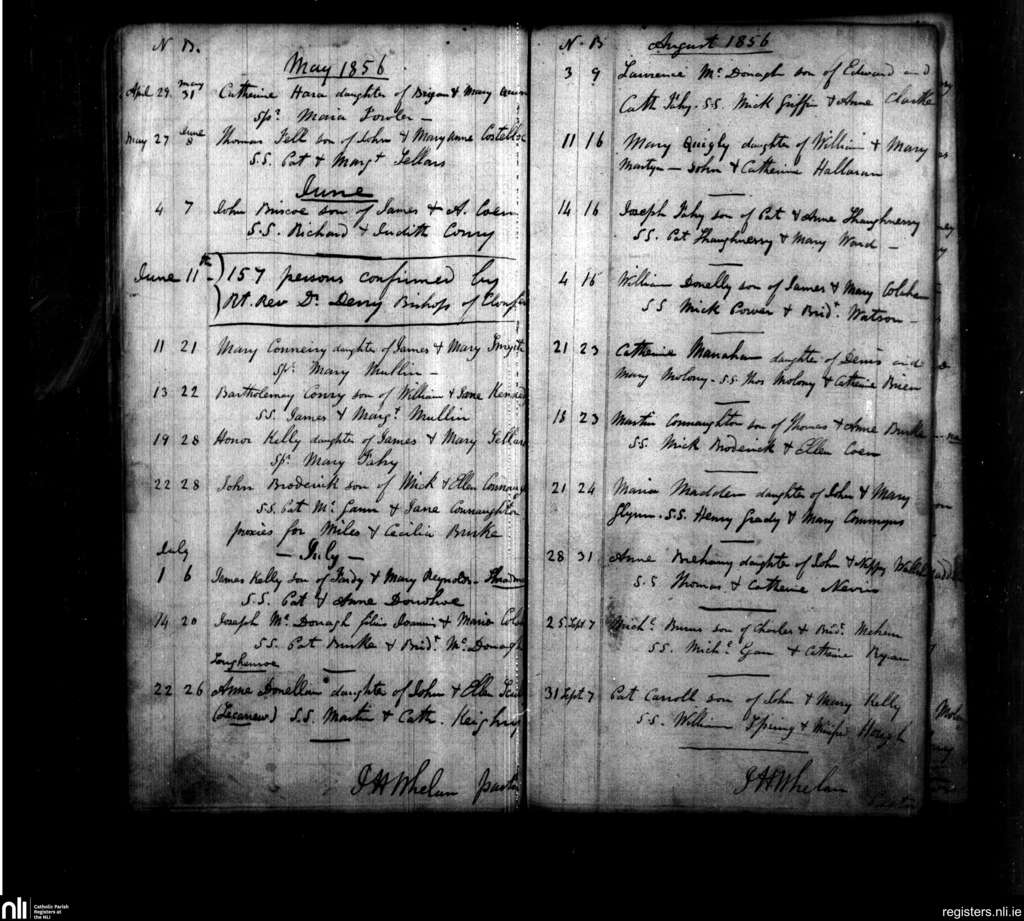 N B.
May 1856
April 29. May 31 Catherine Hara daughter of Bryan & Mary
Spr. Maria Fowler —
May 27 June 8 Thomas Fell son of John & Mary Anne Costello
S.S. Pat & Margt Sellars
June
4 7 John Briscoe son of James & A. Coen
S.S. Richard & Judith Conry
June 11th 157 persons confirmed by
Rt. Rev Dr. Derry Bishop of Clonfert
11 21 Mary daughter of James & Mary Smyth
Spr. Mary Mullin —
13 22 Bartholemew Conry son of William & Jane
S.S. James & Margt. Mullin
19 28 Honor Kelly daughter of James & Mary
Spr. Mary Fahy
22 28 John Broderick son of Mick & Ellen
S.S. Pat Mc Gann & Jane Connaughton
proxies for Miles & Cecilia Burke
July — July —
1 6 James Kelly son of & Mary Reynolds —
S.S. Pat & Anne Donohoe
14 20 Joseph Mc. Donagh filius Joannis & Maria
S.S. Pat Burke & Bridt Mc. Donagh
22 26 Anne Donellan daughter of John & Ellen
S.S. Martin & Cath. Keighry
J H Whelan pastor
N. B August 1856
3 9 Laurence Mc Donagh son of Edward and
Cath Fahy. S.S. Mick Griffin & Anne Clarke
11 16 Mary Quigly daughter of William & Mary
Martyn — John & Catherine Halloran
14 16 Joseph Fahy son of Pat & Anne Shaughnessy
SS. Pat Shaughnessy & Mary Ward —
4 16 William Donelly son of James & Mary
S S Mick & Bridt. Watson —
21 23 Catherine Manahan daughter of Denis and
Mary Molony — S.S. Thos Molony & Catherine Brien
18 23 Martin Connaughton son of Thomas & Anne Burke
SS. Mick Broderick & Ellen Coen
21 24 Maria Madden daughter of John & Mary
Glynn. S.S. Henry Grady & Mary
28 31 Anne daughter of John &
S.S Thomas & Catherine Nevin
25 Sept 7 Michl. Burns son of Charles & Bridt. Mehan
SS. Michl. & Catherine Ryan
31 Sept 7 Pat Carroll son of John & Mary Kelly
S.S. William Spring & Hough
J H Whelan
nli Catholic Parish
Registers at
the NLI
registers.nli.ie